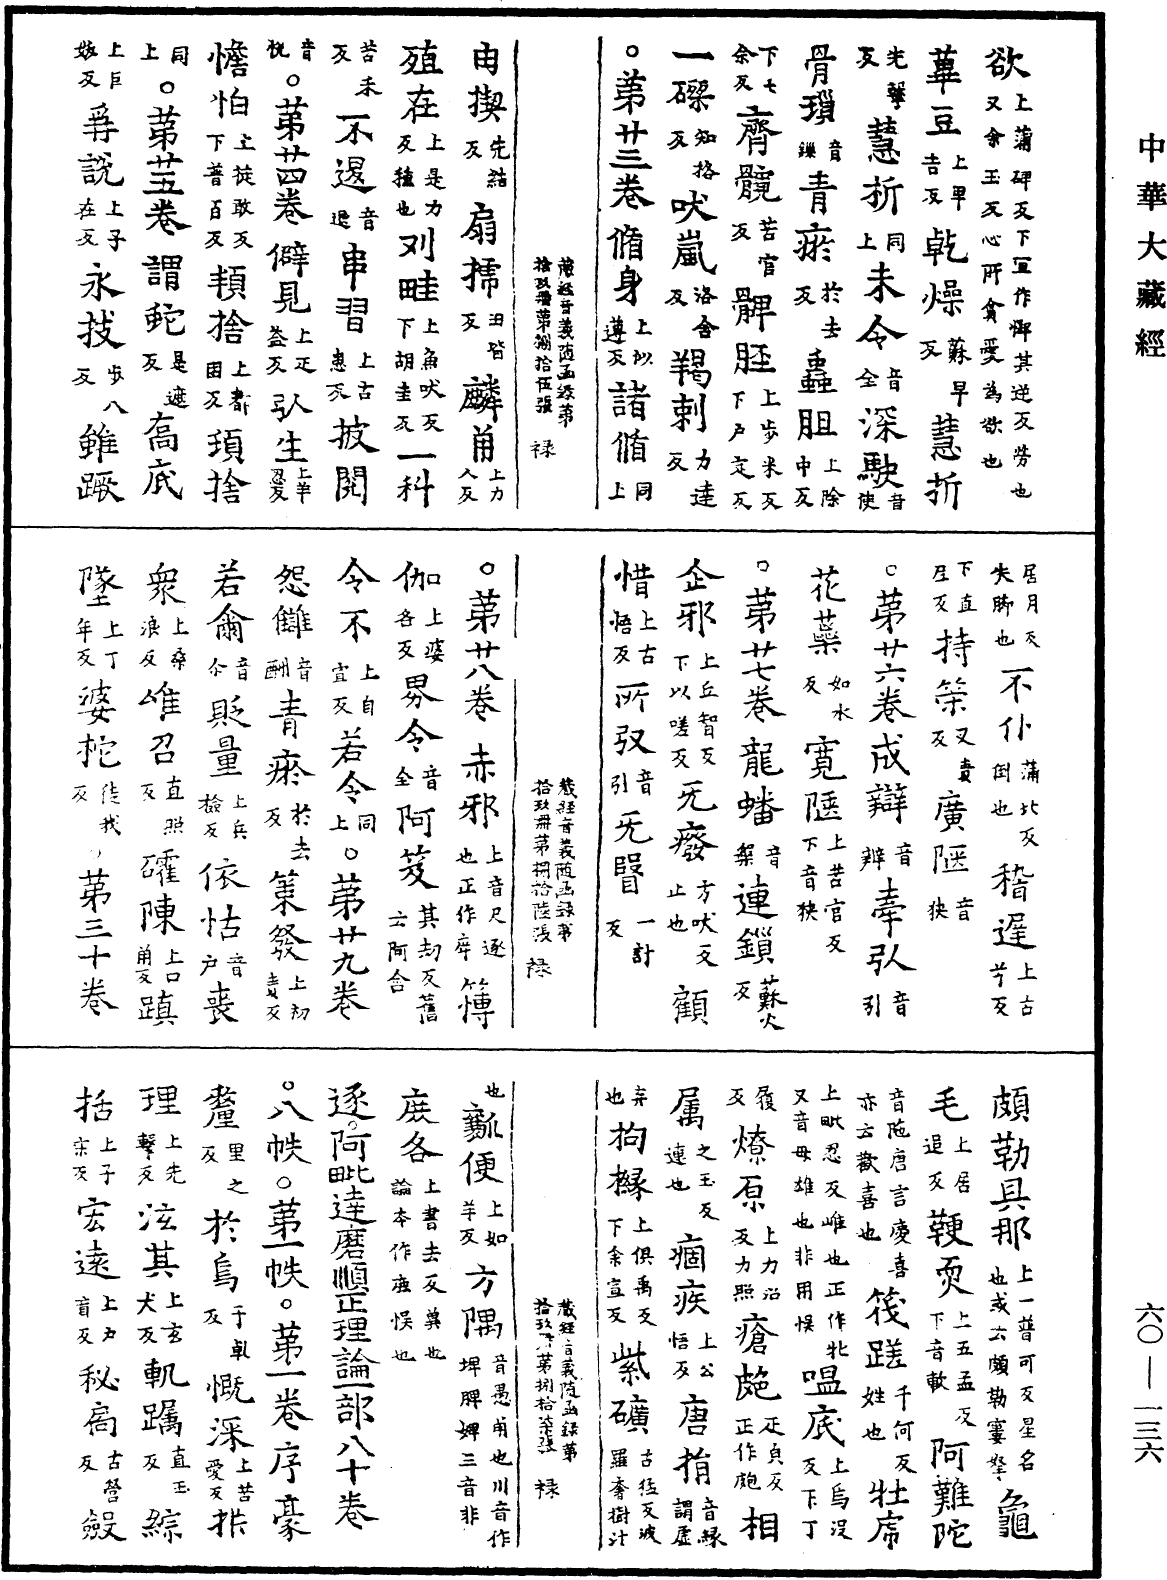 中華大藏經
六〇—一三六
欲上蒲碑反下宜作𢡱其逆反勞也又余玉反心所貪愛為欲也
蓽豆上畢吉反乾燥蘇早反慧折
先擊反慧折同上未令音全深駛音使
骨瑣音鏁青瘀於去反蟲胆上除中反
下七余反齊髖苦官反髀胵上步米反下户定反
一磔知格反吠嵐洛含反羯剌力達反
。第廿三卷脩身上似遵反諸脩同上
藏經音義随函録第拾玖册第捌拾伍張 祿
由揳先結反扇搋丑皆反麟角上力人反
殖在上是力反種也刈畦上魚吠反下胡圭反一科
苦禾反不退音退串習上古患反披閱
音悦。第廿四卷僻見上疋益反引生上羊忍反
憺怕上徒敢反下普百反頓捨上都困反頊捨
同上。第廿五卷謂蛇是遮反高底
上巨姟反尋說上子在反永拔步八反雖蹶
居月反失脚也不仆蒲北反倒也稽遲上古兮反
下直尼反持策叉責反廣陿音狹
。第廿六卷成辯音辨牽引音引
花蘂如水反寬陿上苦官反下音狹
。第廿七卷龍蟠音槃連鎖蘇火反
企邪上丘智反下以嗟反无癈方吠反止也顧
惜上古悟反所引音引无翳一計反
藏經音義随函録第拾玖册第捌拾陸張 祿
。第廿八卷赤邪上音尺逐也正作㡿簙
伽上婆各反畧令音全阿笈其劫反舊云阿含
令不上自宣反若令同上。第廿九卷
怨讎音酬青瘀於去反策發上初責反
若爾音尒貶量上兵檢反依怙音户喪
衆上桑浪反雄召直照反礭陳上口角反蹎
墜上丁年反婆柁徒我反。第三十卷
頗勒具那上一普可反星名也或云頗勒窶拏龜
毛上居追反鞕耎上五孟反下音軟阿難陀
音陁唐言慶喜亦云歡喜也筏蹉千何反姓也牡虎
上毗忍反雌也正作牝又音母雄也非用悮嗢底上烏没反下丁
履反燎原上力沼反力照反瘡皰疋皃反正作皰相
属之玉反連也痼疾上公悟反唐捐音緣謂虛
弃也枸櫞上俱禹反下余宣反紫礦古猛反波羅奢樹汁
藏經音義随函録第拾玖册第捌拾柒張 祿
也瓤便上如羊反方隅音愚角也川音作埤脾婢三音非
庶各上書去反冀也論本作㢘悮也
逐。阿毗達磨順正理論一部八十卷
。八帙。第一帙。第一卷序豪
釐里之反扵烏于卓反慨深上苦愛反拼
理上先擊反泫其上玄犬反軌躅直玉反綜
括上子宋反宏遠上户盲反秘扃古營反斂